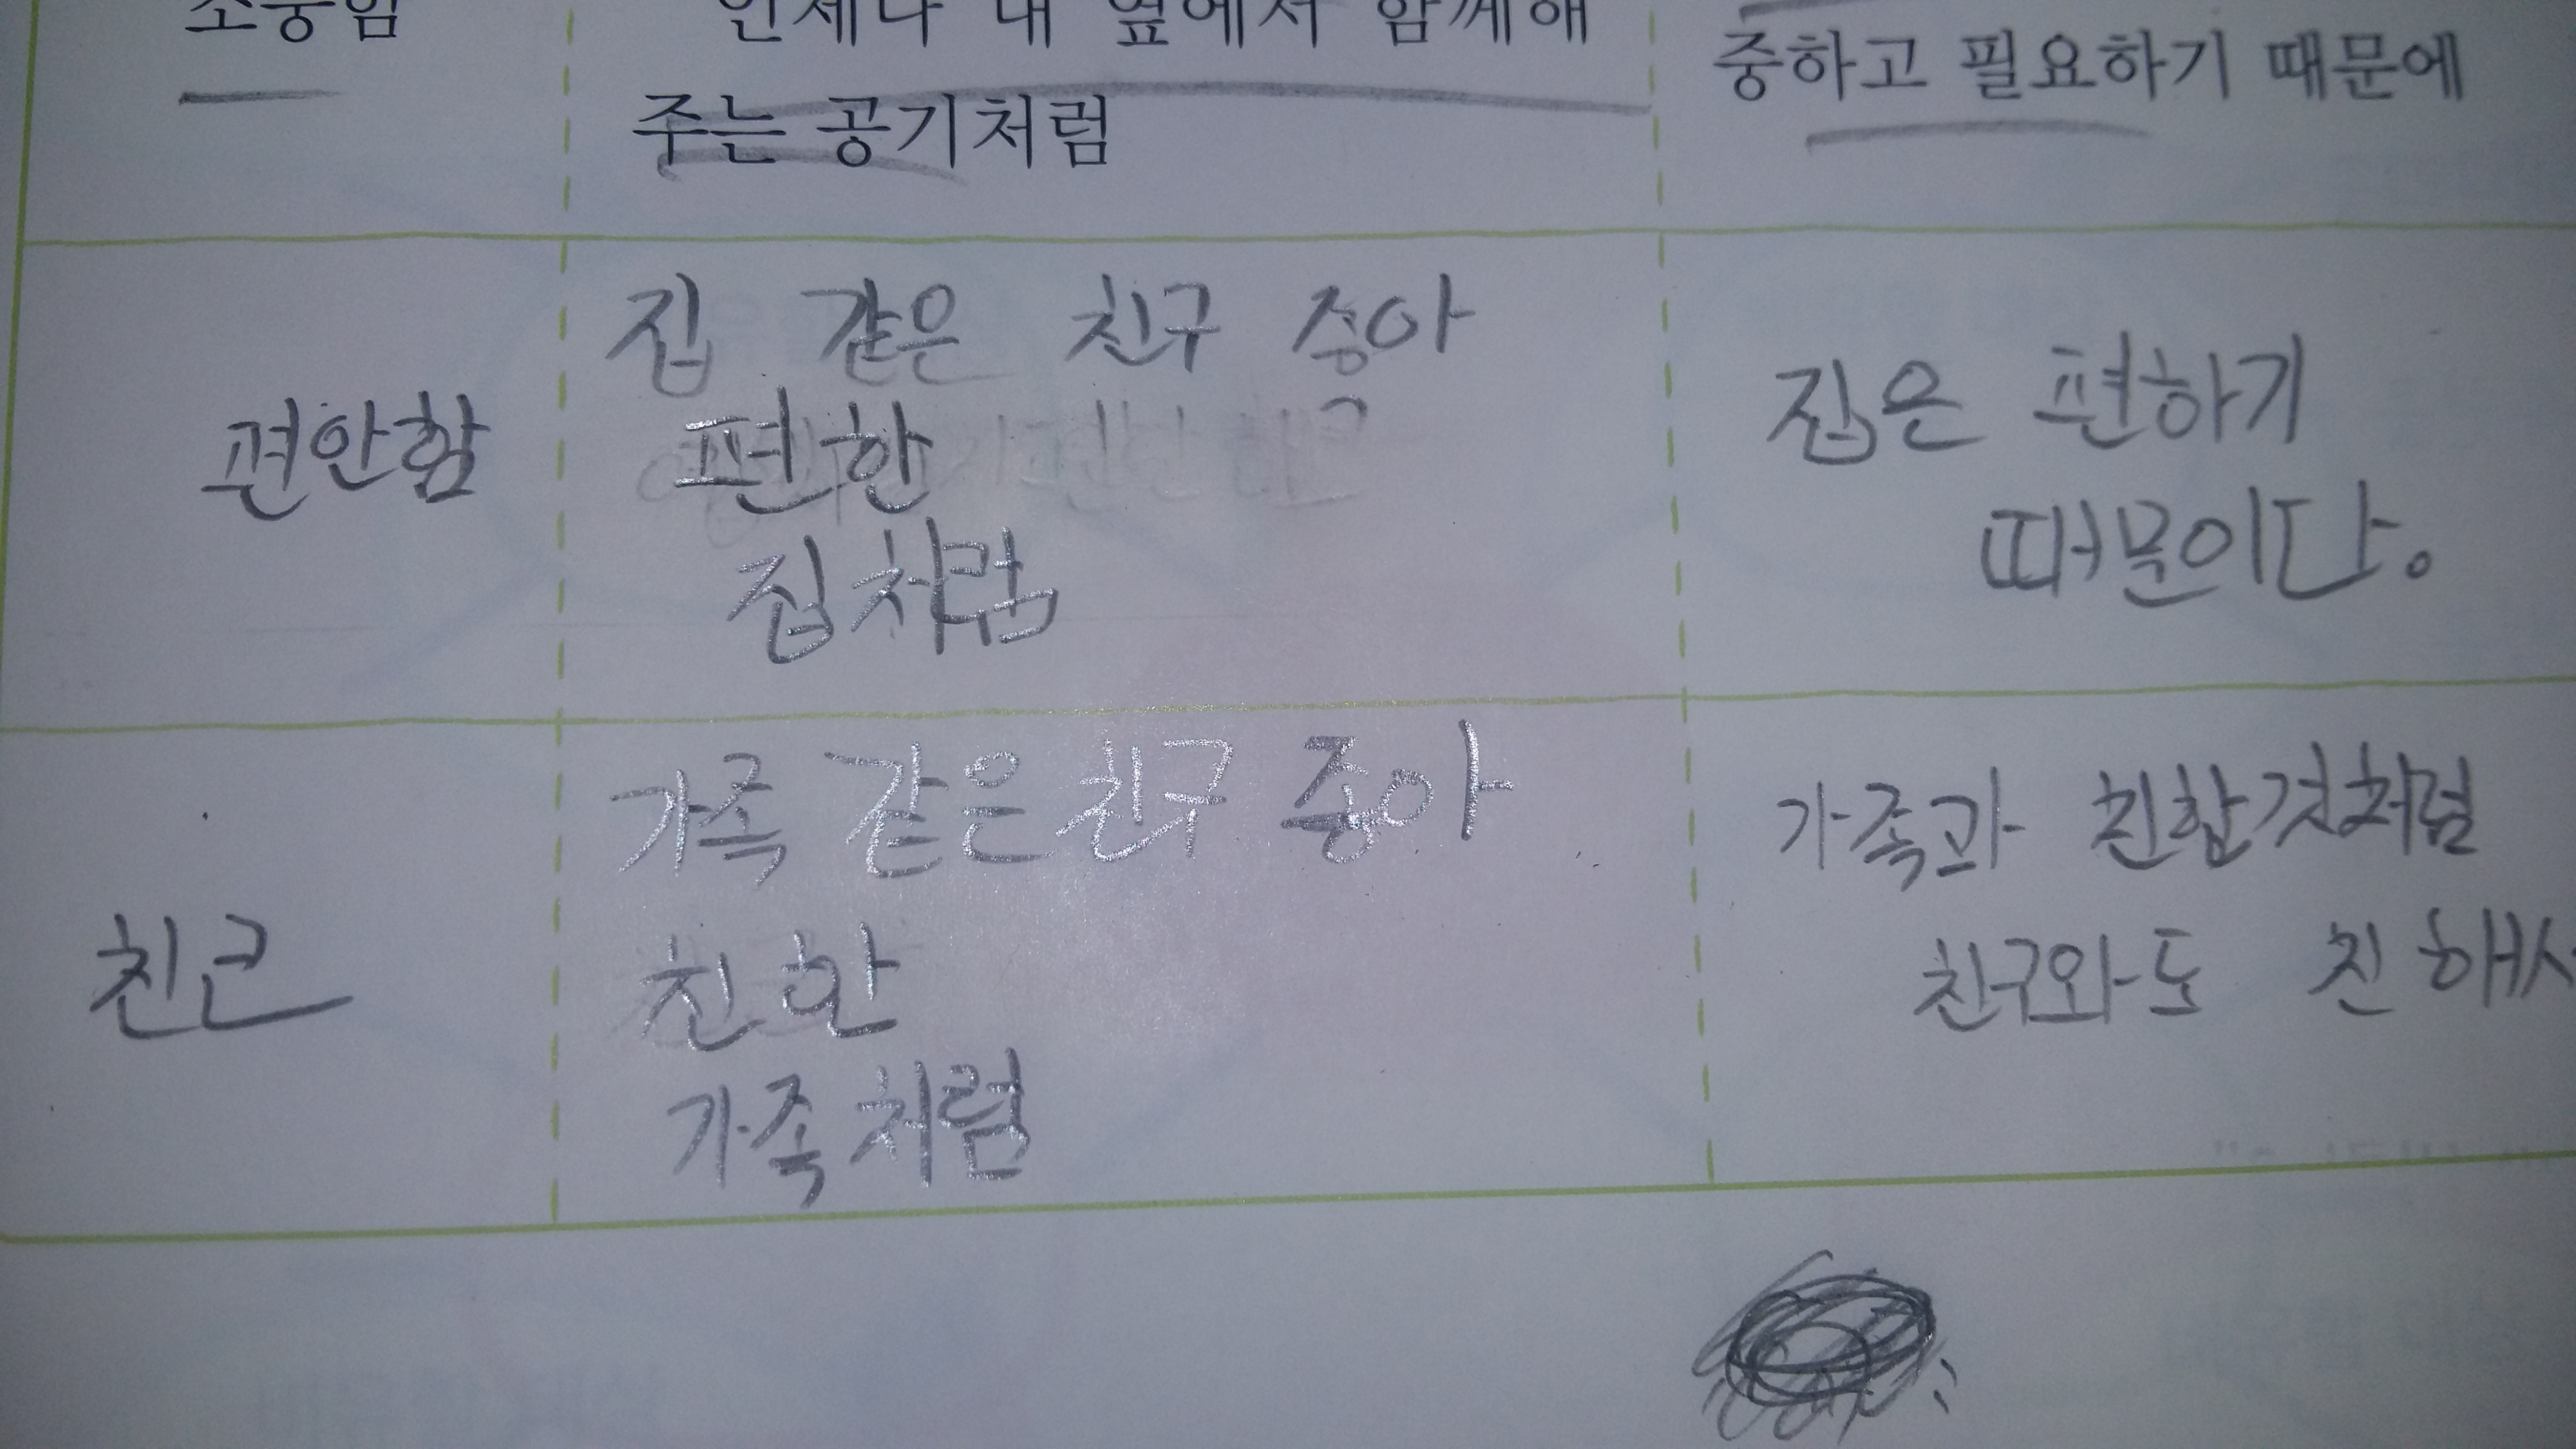 소중함
언제나 내 옆에서 함께해
주는 공기처럼
중하고 필요하기 때문에
편안함
집 같은 친구 좋아
편한
집처럼
집은 편하기
때문이다.
친근
가족 같은 친구 좋아
친한
가족처럼
가족과 친한것처럼
친구와도 친해서